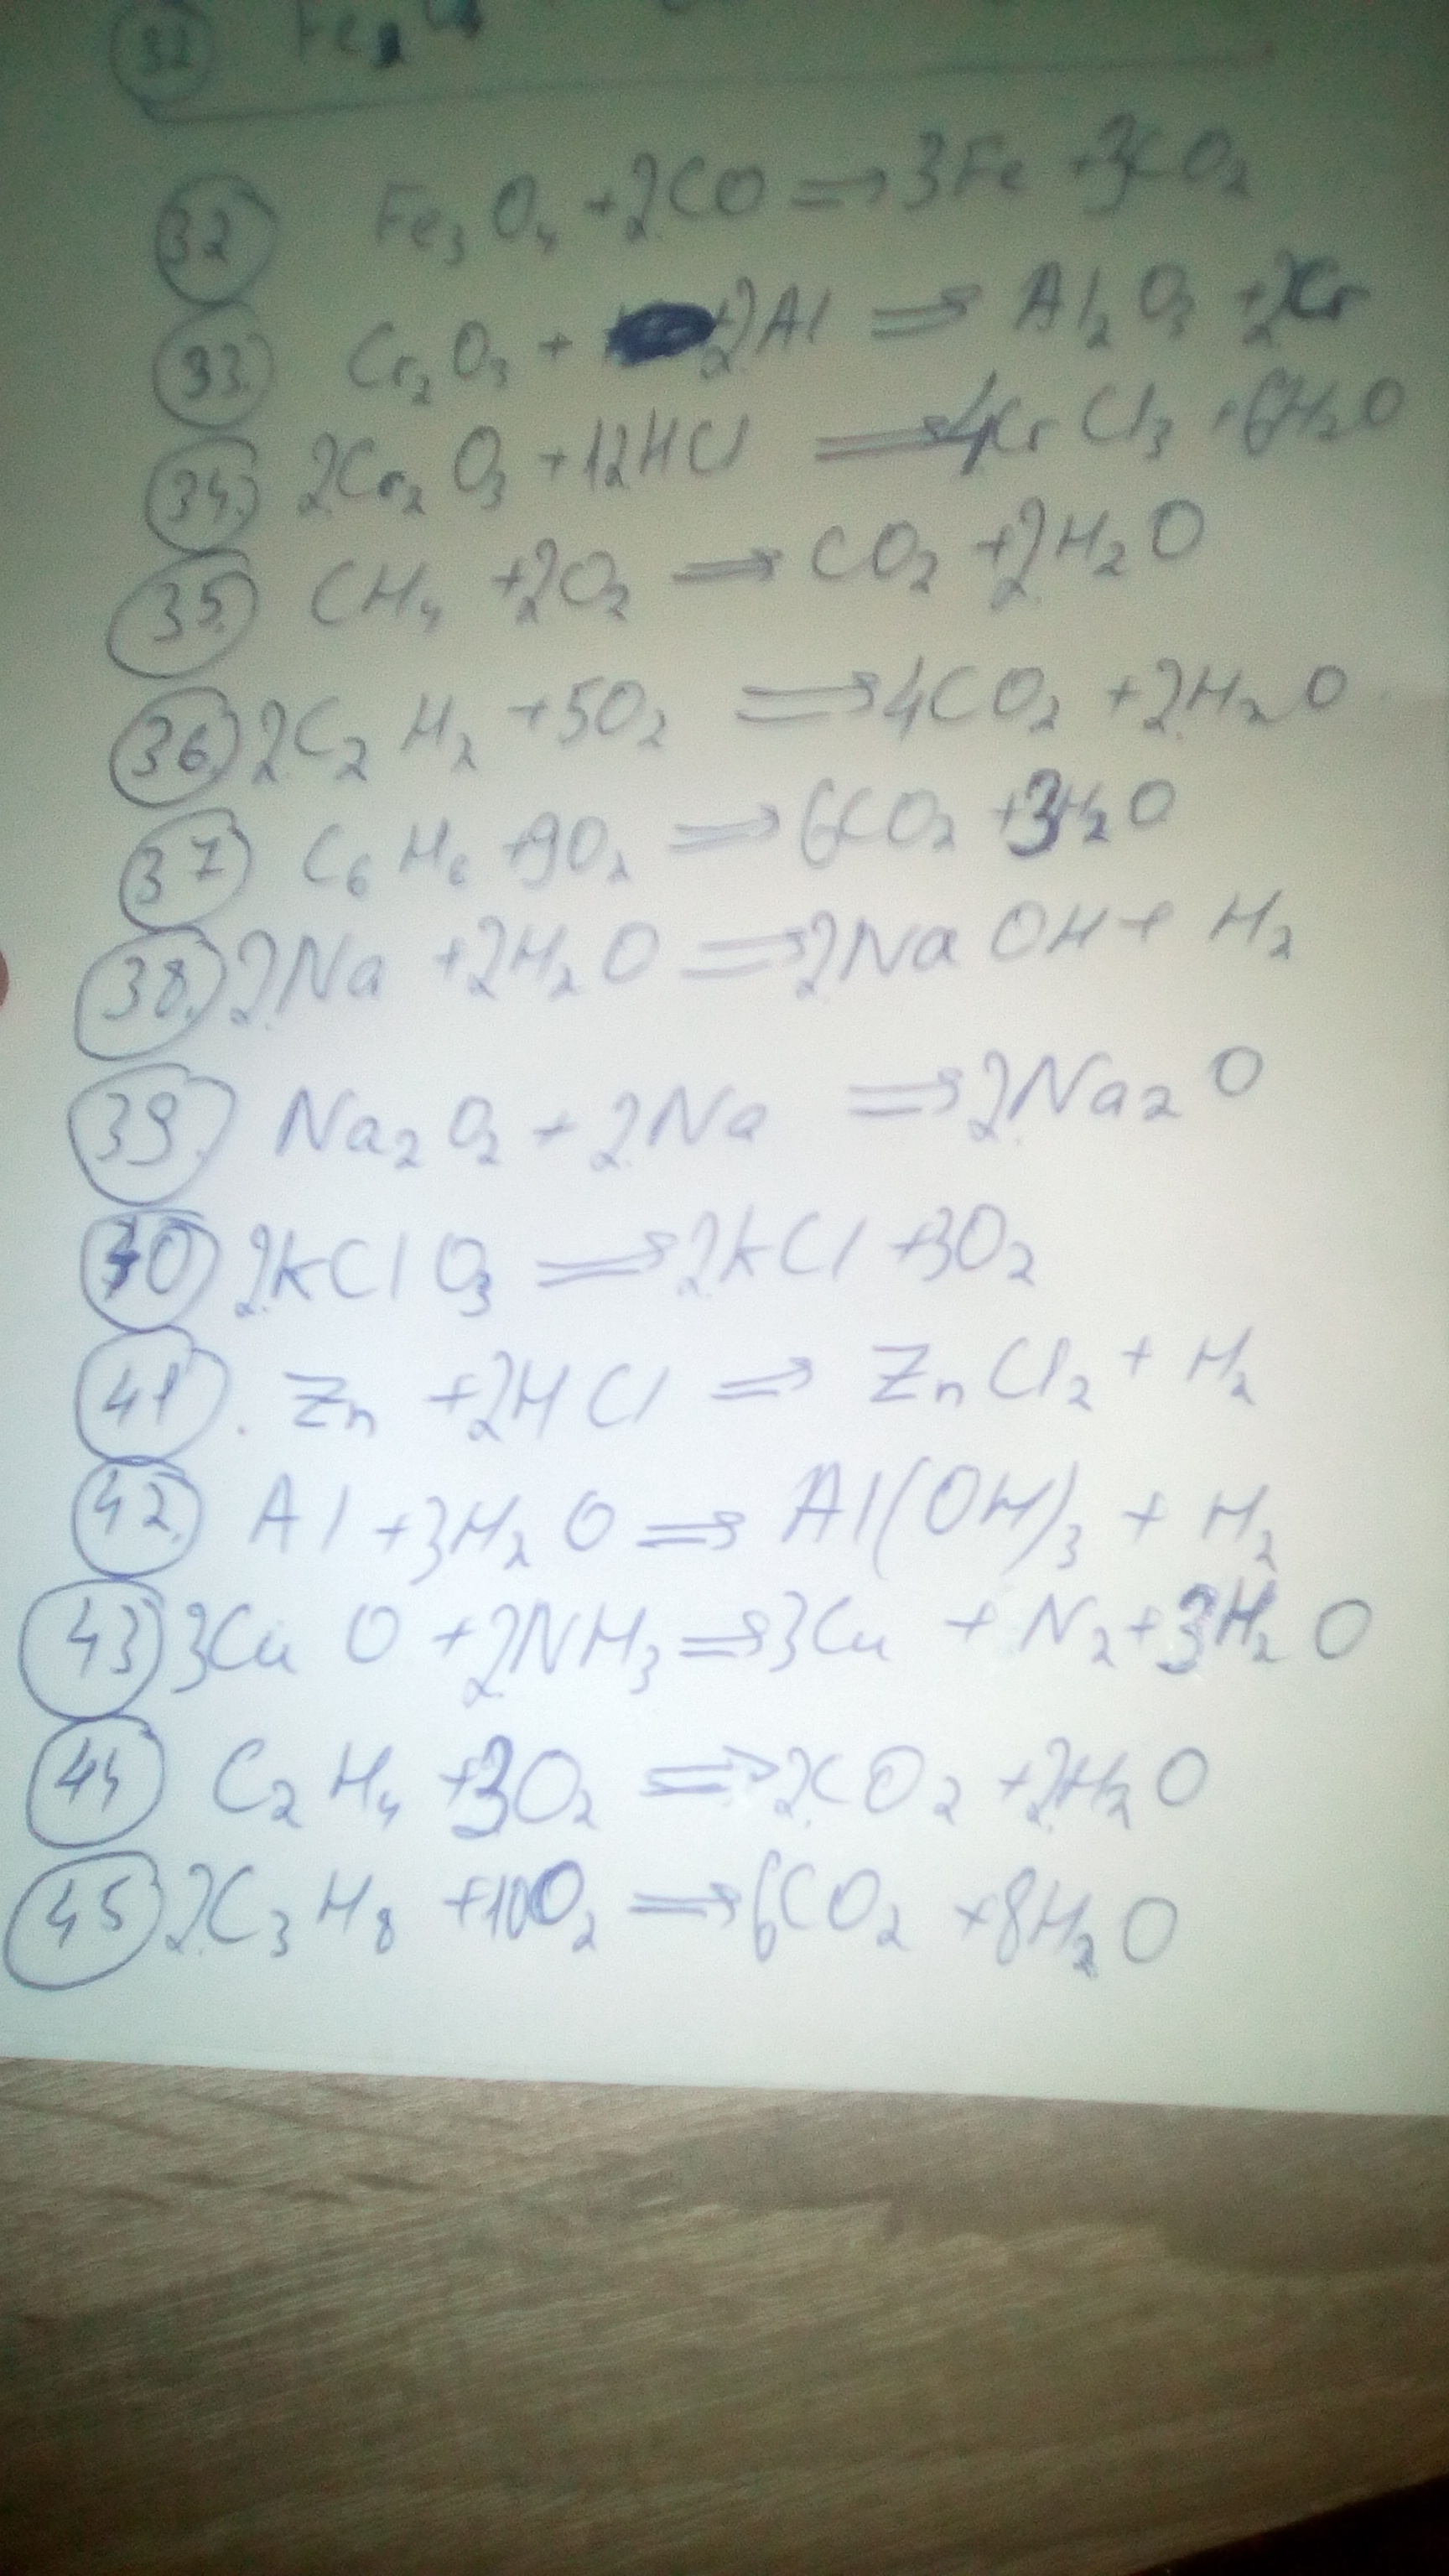 32 Fe₂
32 Fe₃O₄ + 2CO ⇒ 3Fe + 3CO₂
33. Cr₂O₃ + +2Al ⇒ Al₂O₃ + 2Cr
34. 2Cr₂O₃ + 12HCl ⇒ 4CrCl₃ + 6H₂O
35. CH₄ + 2O₂ ⇒ CO₂ + 2H₂O
36. 2C₂H₂ + 5O₂ ⇒ 4CO₂ + 2H₂O
37 C₆H₆ + 9O₂ ⇒ 6CO₂ + 3H₂O
38. 2Na + 2H₂O ⇒ 2NaOH + H₂
39. Na₂O₂ + 2Na ⇒ 2Na₂O
40 2KClO₃ ⇒ 2KCl + 3O₂
41. Zn + 2HCl ⇒ ZnCl₂ + H₂
42. Al + 3H₂O ⇒ Al(OH)₃ + H₂
43 3CuO + 2NH₃ ⇒ 3Cu + N₂ + 3H₂O
44 C₂H₄ + 3O₂ ⇒ 2CO₂ + 2H₂O
45 2C₃H₈ + 10O₂ ⇒ 6CO₂ + 8H₂O